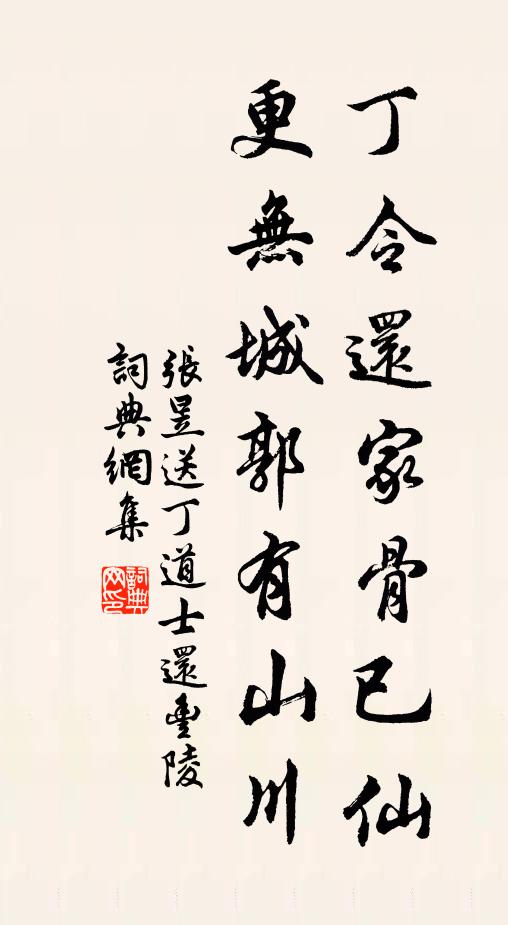 丁令還家骨已仙
更無城郭有山川
張昱送丁道士還豊陵
詞典網集
詞典网印